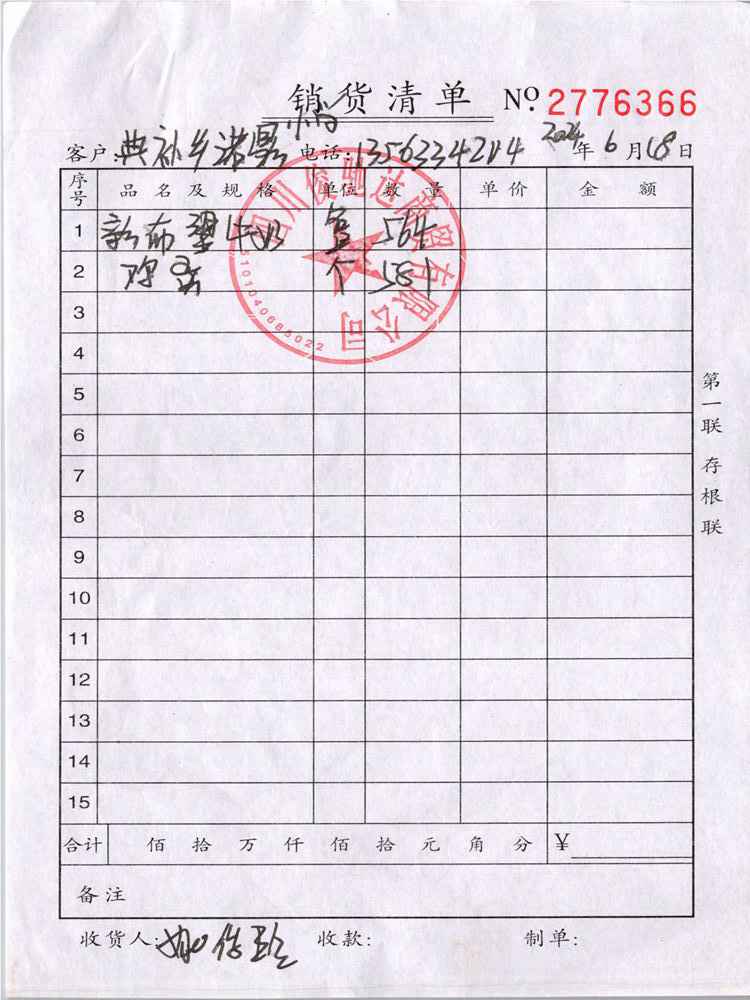 销货清单 №2776366
客户:典补乡诺 电话:13563342144 2024年6月18日
序号 品名及规格 单位 数量 单价 金额
1 新布 牛奶 564
2 个 584
3
4
5
6
7
8
9
10
11
12
13
14
15
四川俊驰达商贸有限公司
5101040685022
第一联 存根联
合计 佰 拾 万 仟 佰 拾 元 角 分 ¥
备注
收货人: 收款: 制单: